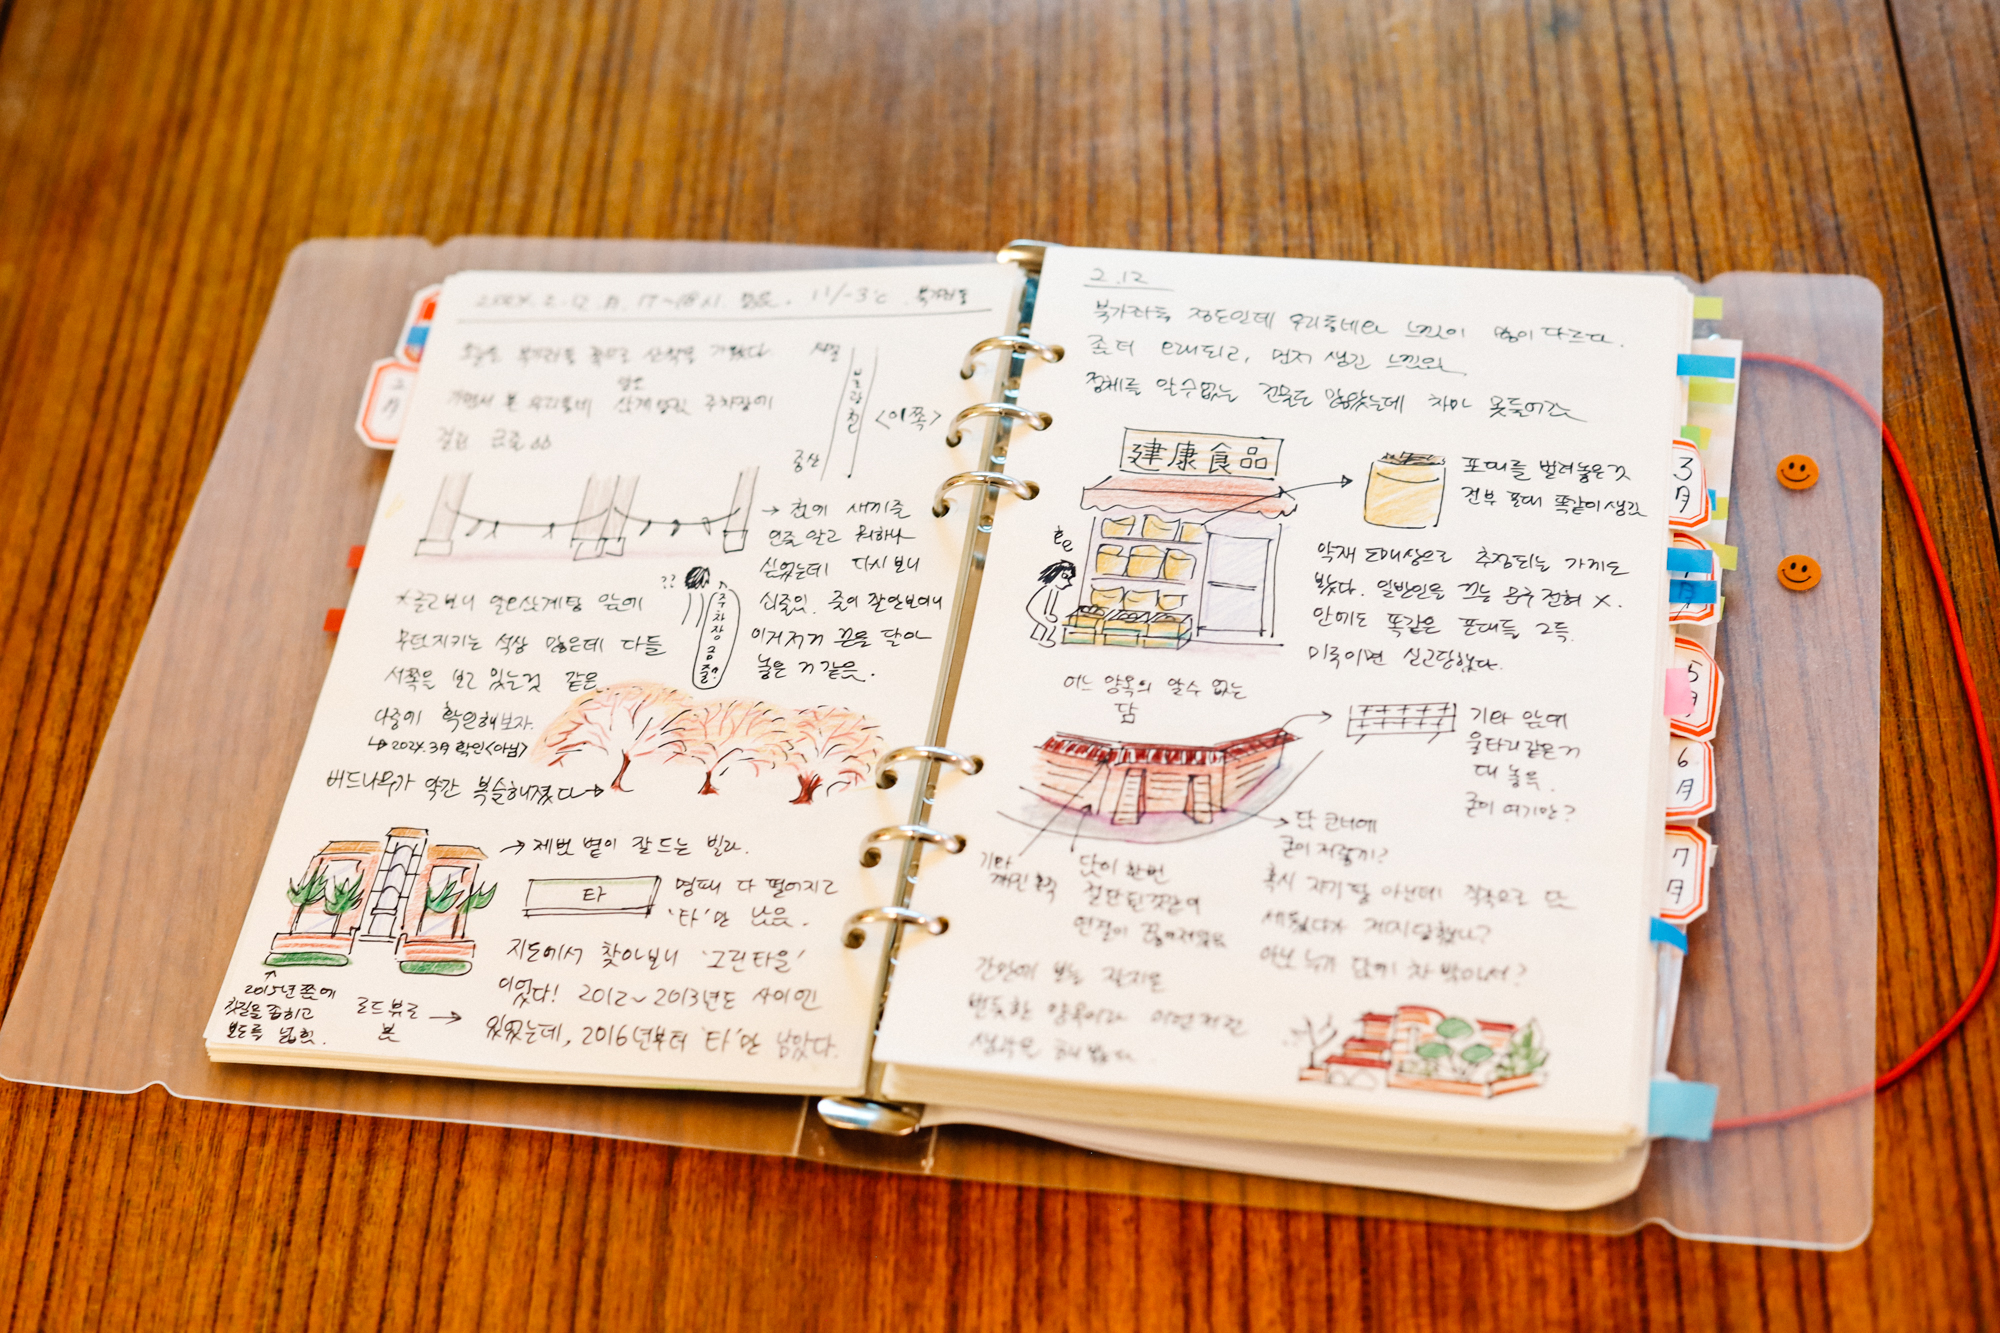 2024. 2. 12. 月. 17~18시. 맑음. 11/-3℃. 북가좌동
오늘은 북가좌동 쪽으로 산책을 가봤다.
가면서 본 우리동네 삼계탕집 주차장에
걸린 금줄
불광천
증산
<이쪽>
→ 전에 새끼줄
인줄 알고 뭐하나
싶었는데 다시 보니
이거저거 끈을 달아
놓은 거 같음.
??
주차장 금줄?
무덤지키는 석상 많은데 다들
서쪽을 보고 있는것 같은
나중에 확인해보자.
↳ 2024. 3月 확인<아님>
버드나무가 약간 복슬해졌다 →
→ 제법 볕이 잘 드는 빌라.
타
명패 다 떨어지고
'타'만 남음.
지도에서 찾아보니 '그린타운'
이었다! 2012~2013년도 사이엔
있었는데, 2016년부터 '타'만 남았다.
2015년쯤에
찻길을 좁히고
보도를 넓힘.
로드뷰로
본 →
2.12
북가좌동 정도인데 우리동네와 느낌이 많이 다르다.
좀 더 오래되고, 먼저 생긴 느낌
정체를 알 수 없는 건물도 많았는데 차마 못들어감
建康食品
포대를 벌려놓은것
전부 포대 똑같이 생김
약재 도매상으로 추정되는 가게도
봤다. 일반인을 끄는 문구 전혀 X.
안에도 똑같은 포대들 그득.
미국이면 신고당했다.
어느 양옥의 알수 없는
담
기와 앞에
울타리같은거
대 놓음.
굳이 여기만?
담 코너에
굳이 저렇게?
기와
깨진 흔적
담이 한번
절단된것같이
연결이 끊어져있음
혹시 자기 땅 아닌데 직각으로 담
세웠다가 제지당했나?
아님 누가 담에 차 박아서?
간만에 보는 잔디도
번듯한 양옥이라 이런저런
생각을 해봤다.
3月
5月
6月
7月